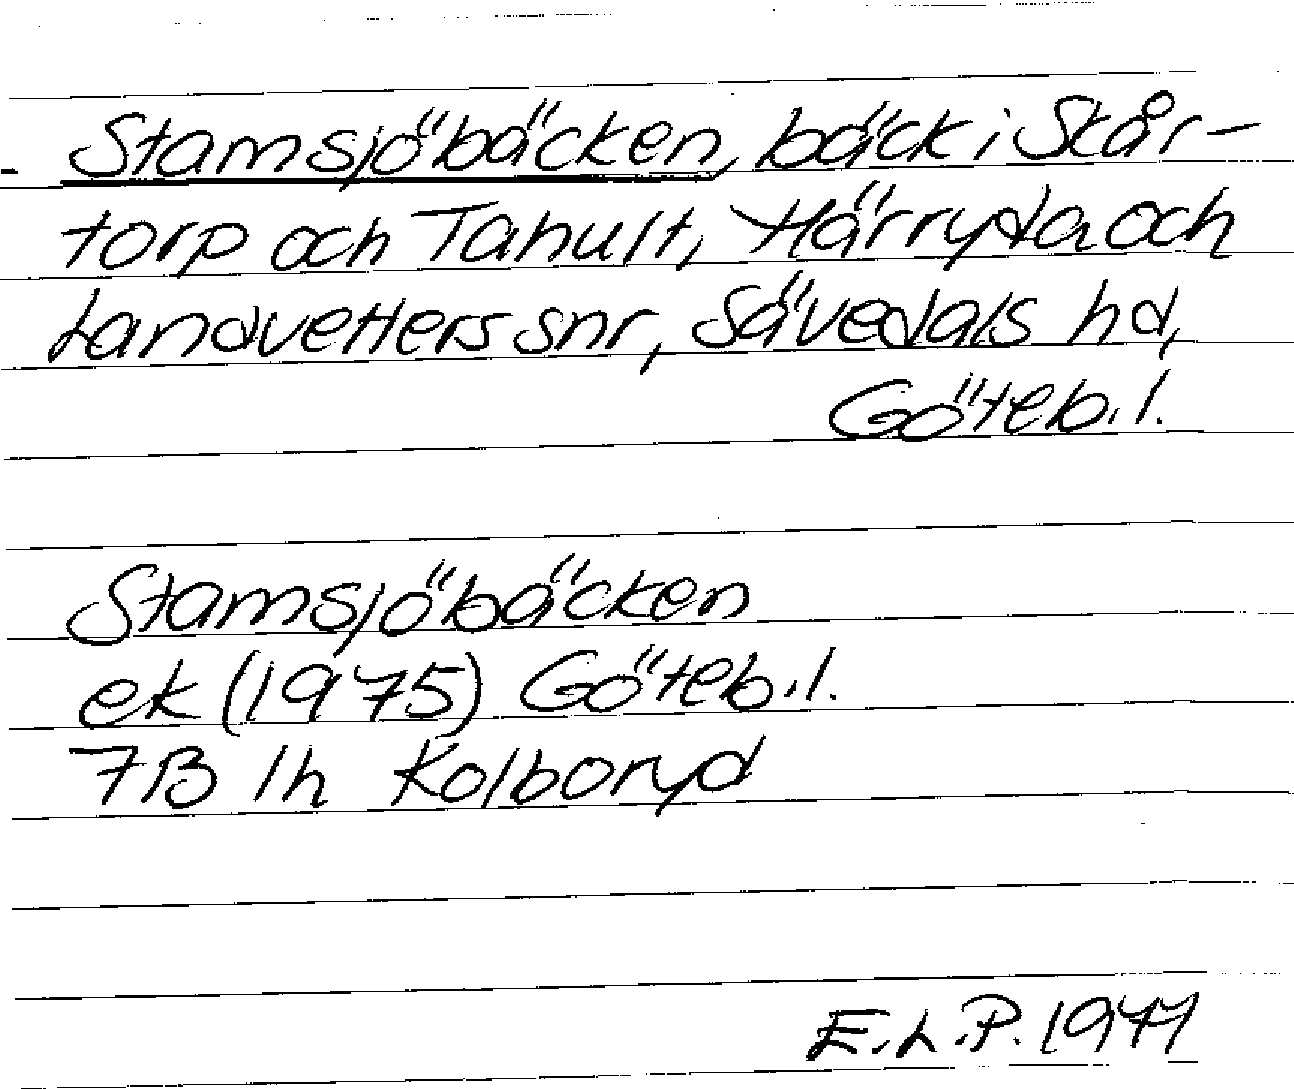 Stamsjöbäcken, bäck i Skår-
torp och Tahult, Härryda och
Landvetters snr, Sävedals hd,
Göteb. l.
Stamsjöbäcken
ek (1975) Göteb. l.
7B 1h Kolboryd
E.L.P. 1977